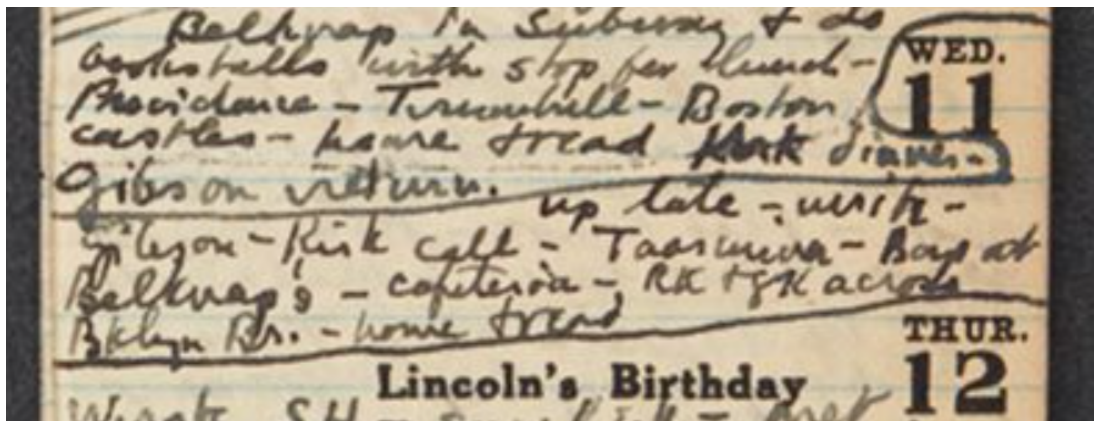 Belknap in Subway & do
bookstalls with stop for lunch -
WED.
Providence - Turnbull - Boston
11
castles - home tread Kirk dinner -
Gibson return.
up late - write -
Gibson - Kirk call - Taormina - Boys at
Belknap's - cafeteria -, RK & GK across
Bklyn Br. - home tread
THUR.
Lincoln's Birthday
12